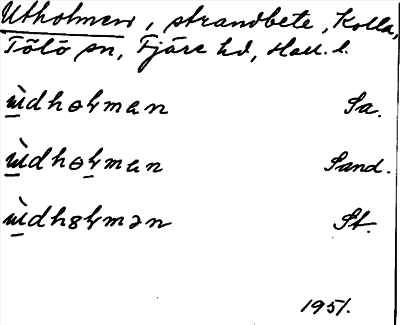 Utholmen, strandbete, Kolla,
Tölö sn, Fjäre hd, Hall. l.
ùdholman Sa.
ùdholman Sand.
ùdhɵlmən St.
1951.